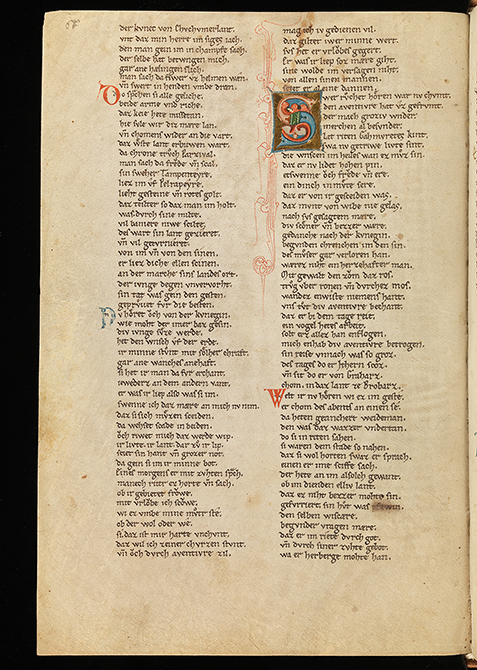 der kvnec von Chvchvmerlant.
vnt dar min herre im siges iach.
den man gein im in champfe sach.
der selbe hat betwngen mich.
gar ane hælingen slich.
man sach da fiwer vz helmen wæn.
vñ swert in henden vmbe dræn.
Do spchen si alle geliche.
beide arme vnd riche.
daz keie hete missetan.
hie svle wir diz mære lan.
vñ chomens wider an die vart.
daz wͦste lant erbuwen wart.
da chrone trvch parzival.
man sach da frevde vñ scal.
sin sweher Tampenteyre.
liez im vf Pelrapeyre.
lieht gesteine vñ rotez golt.
daz teilter so daz man im holt.
was dvrch sine milte.
vil baniere niwe scilte.
des wart sin lant gezieret.
vñ vil getvrnieret.
von im vñ von den sinen.
er liez diche ellen scinen.
an der marche sins landes ort.
der ivnge degen vnervorht.
sin tat was gein den gesten.
geprvuet fvr die besten.
Nv hoͤret ovch von der kvnegin.
wie moht der imer baz gesin.
div ivnge svze werde.
het den wnsch vf der erde.
ir minne stvnt mit solher chraft.
gar ane wanches anehaft.
si het ir man da fvr erchant.
iewederz an dem andern vant.
er was ir liep also was si im.
swenne ich daz mære an mich nv nim.
daz si sich mvzen sceiden.
da wehset scade in beiden.
ovch riwet mich daz werde wip.
ir livte. ir lant. dar zv ir lip.
sciet sin hant von grozer not.
da gein si im ir minne bot.
Eines morgens er mit zvhten spch.
manech riter ez horte vñ sach.
ob ir gebietet frowe.
mit vrlobe ich scowe.
wi ez vmbe mine mvter ste.
ob der wol oder we.
si. daz ist mir harte vnchvnt.
dar wil ich zeiner chvrzen stvnt.
vñ ovch dvrch aventivre zil.
mag ich iv gedienen vil.
daz giltet iwer minne wert.
svs het er vrlobes gegert.
Er was ir liep sox mære giht.
sine wolde im versagen niht.
von allen sinen mannen.
sciet er al eine dannen.
Swer rvͦchet hören war nv chvmt.
den aventivre hat vz gefrvmt.
der mach groziv wnder.
merchen al besvnder.
Let riten Gahmvretes kint.
swa nv getriwe livte sint.
die wnscen im heiles wan ez mvz sin.
daz er nv lidet hohen pin.
etswenne och frevde vñ ere.
ein dinch in mvte sere.
daz er von ir gesceiden was.
daz mvnt von wibe nie gelas.
noch svs gesagtem mære.
div scöner vñ bezzer wære.
gedanche nach der kvnegin.
begvnden chrenchen im den sin.
den mvͤser gar verloren han.
wærez niht ein herzehafter man.
Mit gewalt den zovm daz ros.
trvg vber ronen vñ dvrchez mos.
wandez enwiste niemens hant.
vns tvt div aventivre bechant.
daz er bi dem tage reit.
ein vogel hetes arbeit.
solt erz allez han erflogen.
mich enhab div aventivre betrogen.
sin reise vnnach was so groz.
des tages do er Ithern scoz.
vñ sit do er von Graharz.
chom. in daz lant ze Brobarz.
Welt ir nv hören wi ez im geste.
er chom des abents an einen se.
da heten geanchert weideman.
den was daz wazzer vndertan.
do si in riten sahen.
si waren dem stade so nahen.
daz si wol horten swaz er sprach.
einen er ime sciffe sach.
der hete an im alsolch gewant.
ob im dienden elliv lant.
daz ez niht bezzer mohte sin.
gefvrriert sin hvͦt was pfæwin.
den selben viscære.
begvnder vragen mære.
daz er im riete dvrch got.
vñ dvrch siner zvhte gebot.
wa er herberge mohte han.